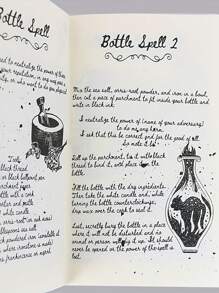 Bottle Spell
need to neutralize the power of those
your reputation, in any way
who want to do you
Tools
black thread
black ballpoint pen
parchment paper
bottle with a cork
and matches
white candle
orris-root
sea salt
powdered iron
Bottle Spell 2
Mix the sea salt, orris-root powder, and iron in a bowl,
then cut a piece of parchment to fit inside your bottle and
write in black ink:
I neutralize the power of (name of your adversary)
to do me any harm.
I ask that this be correct and for the good of all.
So mote it be!
Roll up the parchment, tie it with black
thread to bind it, with place it in the
bottle.
Fill the bottle with the dry ingredients.
Then take the white candle and, while
turning the bottle counterclockwise,
drip wax over the cork to seal it.
Last, secretly bury the bottle in a place
where it will not be disturbed and no
animal or person will dig it up. It should
never be opened or the power of the spell is
lost.